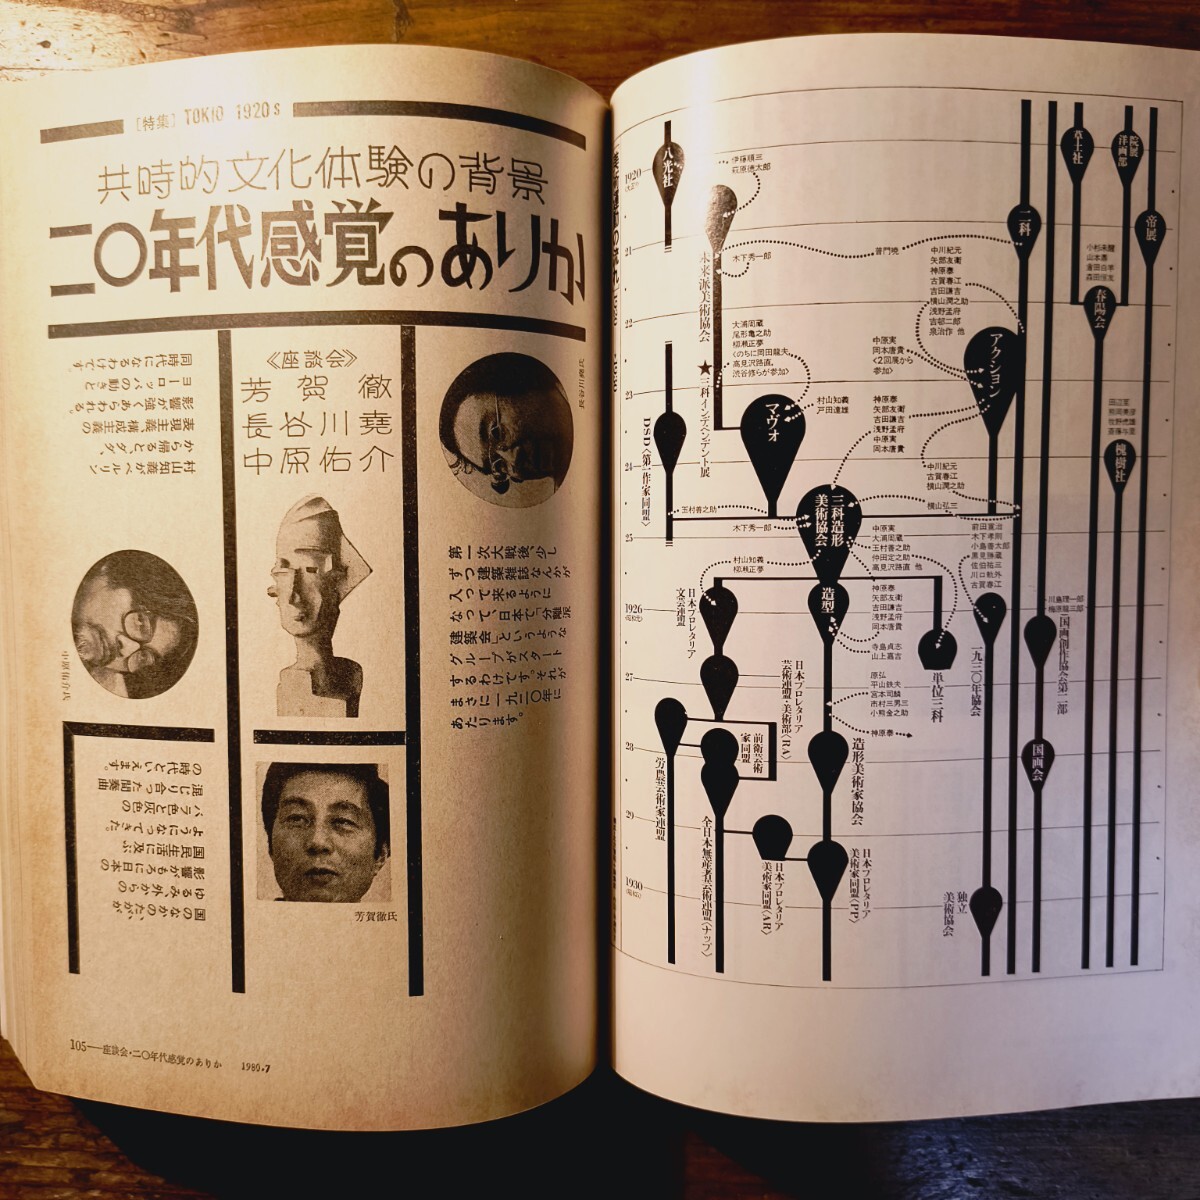 [特集] TOKIO 1920s
共時的文化体験の背景
二〇年代感覚のありか
《座談会》
芳賀 徹
長谷川堯
中原佑介
長谷川堯氏
第一次大戦後、少し
ずつ建築雑誌なんかが
入って来るように
なって、日本で「分離派
建築会」というような
グループがスタート
するわけです。それが
まさに一九二〇年に
あたります。
村山知義がベルリン
から帰ると、ダダ、
表現主義、構成主義の
影響が強くあらわれる。
ヨーロッパの動きと
同時代になるわけです。
中原佑介氏
芳賀徹氏
国のなかのたいがが
ゆるみ、外からの
影響がもろに日本の
国民生活に及ぶ
ようになってきた。
バラ色と灰色の
混じり合った間奏曲
の時代といえます。
105──座談会・二〇年代感覚のありか 1980・7
1920
21
22
23
24
25
1926
27
28
29
1930
八光社
伊藤順三
萩原徳太郎
未来派美術協会
木下秀一郎
普門暁
二科
草土社
院展洋画部
帝展
小杉未醒
山本鼎
倉田白羊
森田恒友
春陽会
中川紀元
矢部友衛
神原泰
古賀春江
吉田謙吉
横山潤之助
浅野孟府
吉邨二郎
泉治作 他
アクション
中原実
岡本唐貴
〈2回展から
参加〉
大浦周蔵
尾形亀之助
柳瀬正夢
〈のちに岡田龍夫
高見沢路直、
渋谷修らが参加〉
★三科インデペンデント展
マヴォ
村山知義
戸田達雄
神原泰
矢部友衛
吉田謙吉
浅野孟府
中原実
岡本唐貴
中川紀元
古賀春江
横山潤之助
槐樹社
DSD〈第一作家同盟〉
玉村善之助
木下秀一郎
三科造形美術協会
横山弘三
中原実
大浦周蔵
玉村善之助
仲田定之助
高見沢路直 他
前田寛治
木下孝則
小島善太郎
里見勝蔵
佐伯祐三
川口軌外
古賀春江
村山知義
柳瀬正夢
日本プロレタリア
文芸連盟
造型
神原泰
矢部友衛
吉田謙吉
浅野孟府
岡本唐貴
寺島貞志
山上嘉吉
単位三科
一九三〇年協会
川島理一郎
梅原龍三郎
国画創作協会第二部
国画会
日本プロレタリア
芸術連盟・美術部〈RA〉
原弘
平山鉄夫
宮本司麟
市村三男三
小熊金之助
神原泰
造形美術家協会
労農芸術家連盟
前衛芸術
家同盟
全日本無産者芸術連盟〈ナップ〉
日本プロレタリア
美術家同盟〈AR〉
日本プロレタリア
美術家同盟〈PP〉
独立
美術協会